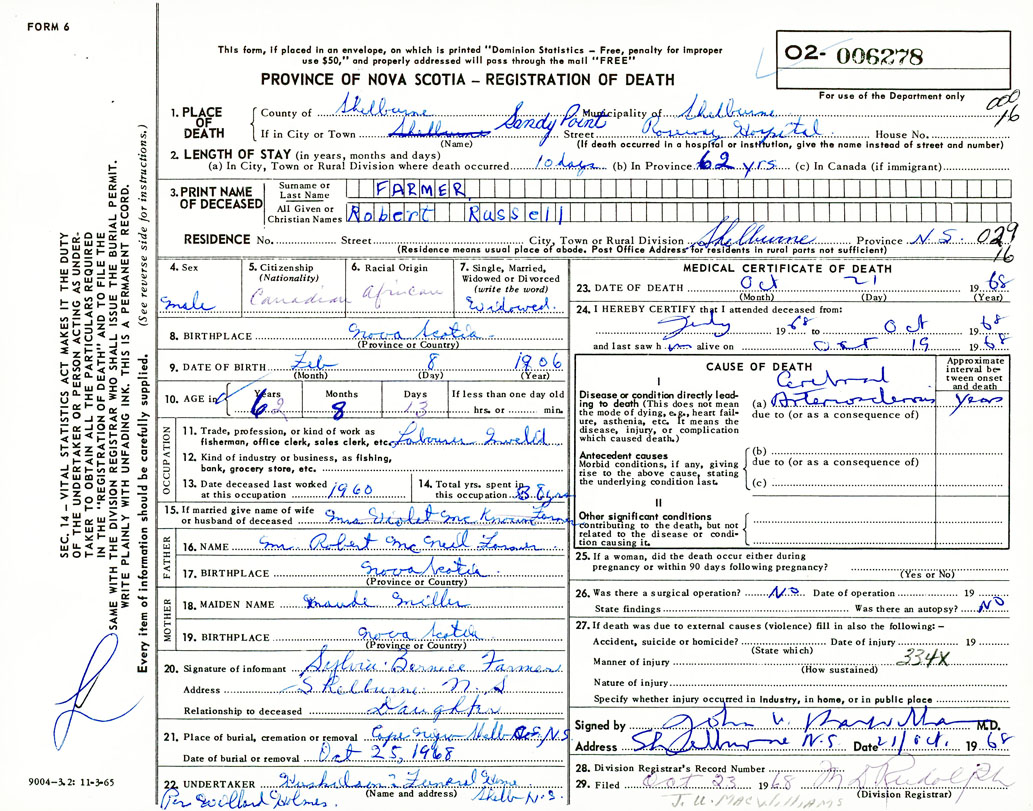 FORM 6
This form, if placed in an envelope, on which is printed "Dominion Statistics – Free, penalty for improper
use $50," and properly addressed will pass through the mail "FREE"
PROVINCE OF NOVA SCOTIA – REGISTRATION OF DEATH
O2- 006278
For use of the Department only
000
16
1. PLACE OF DEATH
County of Shelburne Municipality of Shelburne
If in City or Town Shelburne Sandy Point Street Roseway Hospital House No.
(Name) (If death occurred in a hospital or institution, give the name instead of street and number)
2. LENGTH OF STAY (in years, months and days)
(a) In City, Town or Rural Division where death occurred 10 days (b) In Province 62 yrs (c) In Canada (if immigrant)
3. PRINT NAME OF DECEASED
Surname or Last Name FARMER
All Given or Christian Names Robert Russell
RESIDENCE No. Street City, Town or Rural Division Shelburne Province N.S. 029
16
(Residence means usual place of abode. Post Office Address for residents in rural parts not sufficient)
4. Sex
male
5. Citizenship
(Nationality)
Canadian
6. Racial Origin
African
7. Single, Married,
Widowed or Divorced
(write the word)
Widowed.
8. BIRTHPLACE Nova Scotia
(Province or Country)
9. DATE OF BIRTH Feb 8 1906
(Month) (Day) (Year)
10. AGE in Years Months Days If less than one day old
62 8 13 hrs. or min.
OCCUPATION
11. Trade, profession, or kind of work as
fisherman, office clerk, sales clerk, etc. Labourer
12. Kind of industry or business, as fishing,
bank, grocery store, etc.
13. Date deceased last worked
at this occupation 1960
14. Total yrs. spent in
this occupation yrs
15. If married give name of wife
or husband of deceased Mrs Violet Farmer
FATHER
16. NAME Mr. Robert McNeil Farmer
17. BIRTHPLACE Nova Scotia
(Province or Country)
MOTHER
18. MAIDEN NAME Maude Miller
19. BIRTHPLACE Nova Scotia
(Province or Country)
20. Signature of informant Sylvia Bernice Farmer
Address Shelburne N.S
Relationship to deceased Daughter
21. Place of burial, cremation or removal N.S
Date of burial or removal Oct 25, 1968
22. UNDERTAKER Funeral Home
(Name and address) Shelb N.S.
Per Willard Holmes.
MEDICAL CERTIFICATE OF DEATH
23. DATE OF DEATH Oct 21 1968
(Month) (Day) (Year)
24. I HEREBY CERTIFY that I attended deceased from:
July 1968 to Oct 1968
and last saw him alive on Oct 19 1968
CAUSE OF DEATH
Approximate interval between onset and death
I
Disease or condition directly leading to death (This does not mean the mode of dying, e.g., heart failure, asthenia, etc. It means the disease, injury, or complication which caused death.)
Cerebral
(a) Arteriosclerosis years
due to (or as a consequence of)
Antecedent causes
Morbid conditions, if any, giving rise to the above cause, stating the underlying condition last.
(b)
due to (or as a consequence of)
(c)
II
Other significant conditions
contributing to the death, but not related to the disease or condition causing it.
25. If a woman, did the death occur either during
pregnancy or within 90 days following pregnancy?
(Yes or No)
26. Was there a surgical operation? No Date of operation 19
State findings Was there an autopsy? No
27. If death was due to external causes (violence) fill in also the following: –
Accident, suicide or homicide? Date of injury 19
(State which)
Manner of injury 334X
(How sustained)
Nature of injury
Specify whether injury occurred in Industry, in home, or in public place
Signed by John M.D.
Address Shelburne N.S. Date 21/Oct. 1968
28. Division Registrar's Record Number
29. Filed Oct 23 1968 M D Rudolph
(Division Registrar)
J. U. MACWILLIAMS
SEC. 14 – VITAL STATISTICS ACT MAKES IT THE DUTY
OF THE UNDERTAKER OR PERSON ACTING AS UNDER-
TAKER TO OBTAIN ALL THE PARTICULARS REQUIRED
IN THE "REGISTRATION OF DEATH" AND TO FILE THE
SAME WITH THE DIVISION REGISTRAR WHO SHALL ISSUE THE BURIAL PERMIT.
WRITE PLAINLY WITH UNFADING INK. THIS IS A PERMANENT RECORD.
Every item of information should be carefully supplied. (See reverse side for instructions.)
9004-3.2: 11-3-65